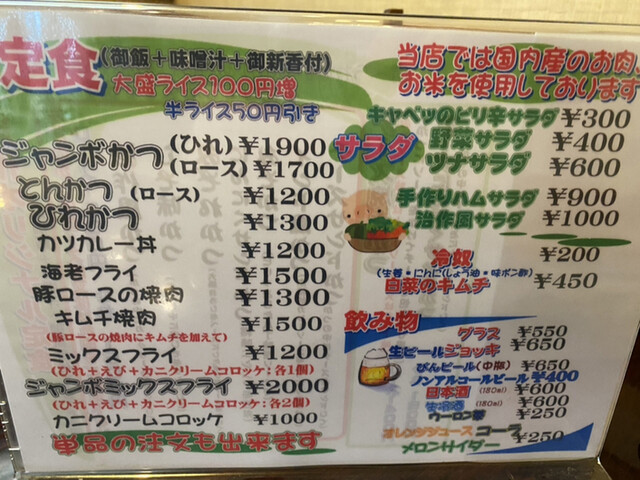 定食 (御飯＋味噌汁＋御新香付)
大盛ライス100円増
半ライス50円引き
ジャンボかつ (ひれ) ¥1900
(ロース) ¥1700
とんかつ (ロース) ¥1200
ひれかつ ¥1300
カツカレー丼 ¥1200
海老フライ ¥1500
豚ロースの焼肉 ¥1300
キムチ焼肉 ¥1500
(豚ロースの焼肉にキムチを加えて)
ミックスフライ ¥1200
(ひれ＋えび＋カニクリームコロッケ：各1個)
ジャンボミックスフライ ¥2000
(ひれ＋えび＋カニクリームコロッケ：各2個)
カニクリームコロッケ ¥1000
単品の注文も出来ます
当店では国内産のお肉、
お米を使用しております
サラダ
キャベツのピリ辛サラダ ¥300
野菜サラダ ¥400
ツナサラダ ¥600
手作りハムサラダ ¥900
治作風サラダ ¥1000
冷奴 ¥200
(生姜＊にんにくしょう油＊味ポン酢)
白菜のキムチ ¥450
飲み物
生ビール グラス ¥550
ジョッキ ¥650
びんビール (中瓶) ¥650
ノンアルコールビール ¥400
日本酒 (180ml) ¥600
生冷酒 (180ml) ¥600
ウーロン茶 ¥250
オレンジジュース コーラ ¥250
メロンサイダー